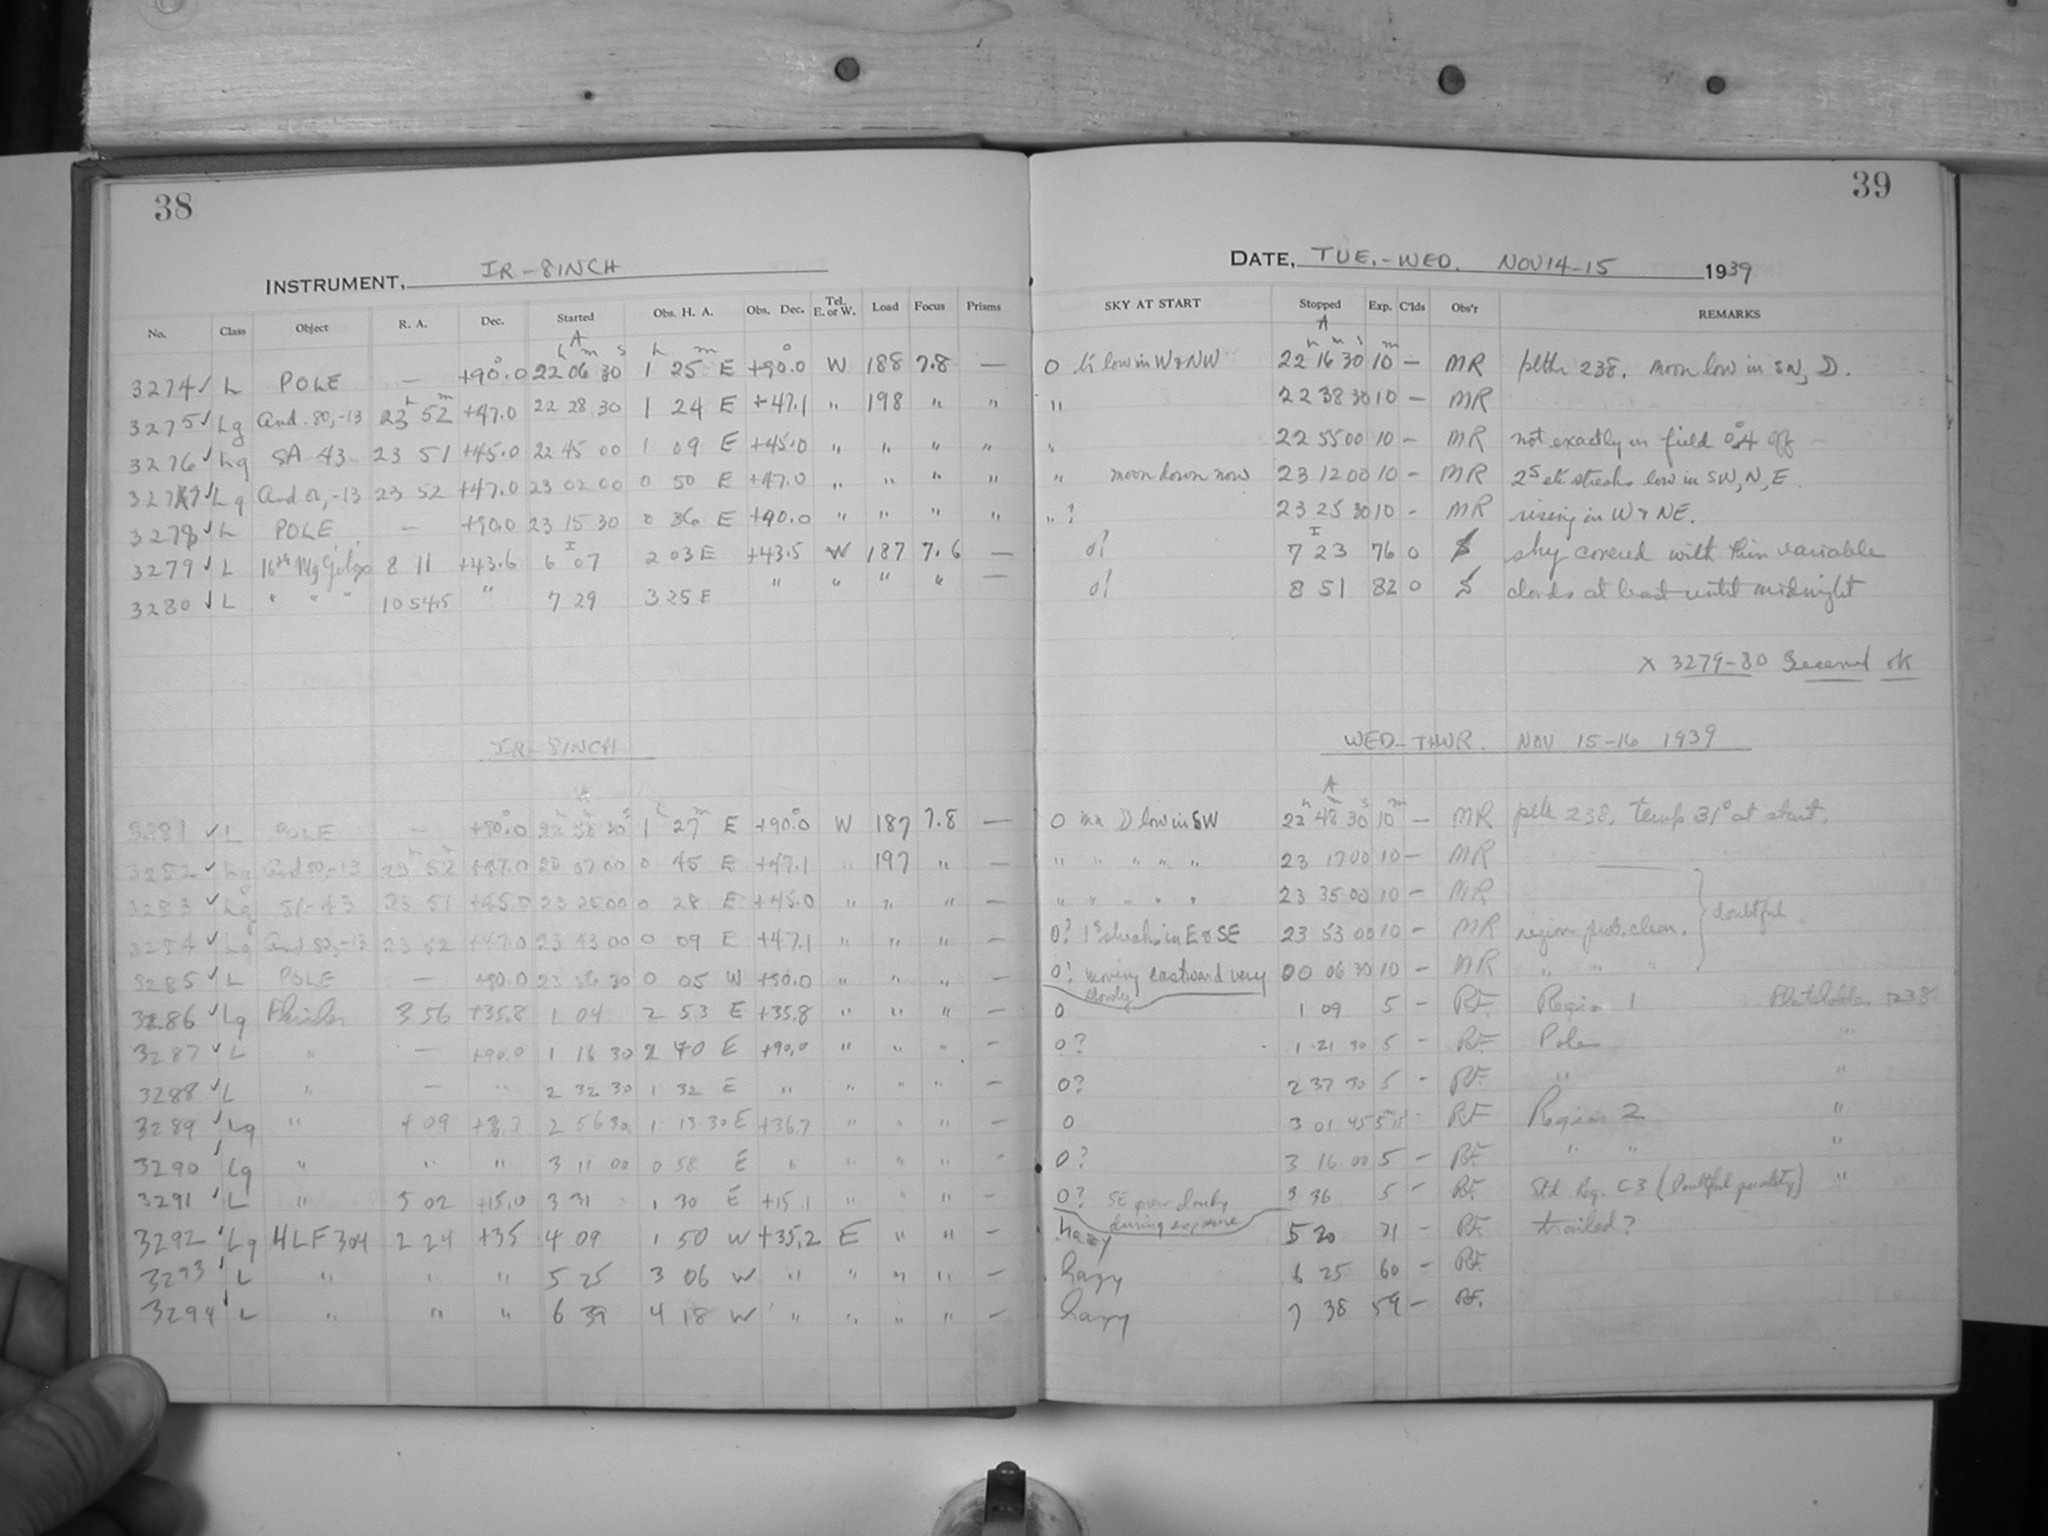 38
INSTRUMENT, IR-8INCH
No. Class Object R. A. Dec. Started Obs. H. A. Obs. Dec. Tel. E. or W. Load Focus Prisms
3274 ✓ L POLE — +90.0 22 06 30 1 25 E +90.0 W 188 7.8 —
3275 ✓ Lg And. 80,-13 23 52 +47.0 22 28 30 1 24 E +47.1 " 198 " "
3276 ✓ Lg SA 43 23 51 +45.0 22 45 00 1 09 E +45.0 " " " "
3277 ✓ Lg And 80,-13 23 52 +47.0 23 02 00 0 50 E +47.0 " " " "
3278 ✓ L POLE — +90.0 23 15 30 0 36 E +90.0 " " " "
3279 ✓ L 16th Mg 8 11 +43.6 6 07 2 03 E +43.5 W 187 7.6 —
3280 ✓ L " " " 10 54.5 " 7 29 3 25 E " " " " —
IR-8INCH
3281 ✓ L POLE — +90.0 22 38 30 1 27 E +90.0 W 187 7.8 —
3282 ✓ Lg And 80,-13 23 52 +47.0 0 45 E +47.1 " 197 " —
3283 ✓ Lg SA-43 23 51 +45.0 23 25 00 0 28 E +45.0 " " " —
3284 ✓ Lg And 80,-13 23 52 +47.0 23 43 00 0 09 E +47.1 " " " —
3285 ✓ L POLE — +90.0 23 56 30 0 05 W +90.0 " " " —
3286 ✓ Lg 3 56 +35.8 1 04 2 53 E +35.8 " " " —
3287 ✓ L " — +90.0 1 16 30 2 40 E +90.0 " " " —
3288 ✓ L " — " 2 32 30 1 32 E " " " " —
3289 ✓ Lg " 4 09 2 56 30 1 13 30 E +36.7 " " " —
3290 ✓ Lg " " " 3 11 00 0 58 E " " " " —
3291 ✓ L " 5 02 +15.0 3 31 1 30 E +15.1 " " " —
3292 ✓ Lg HLF 304 2 24 +35 4 09 1 50 W +35.2 E " " —
3293 ✓ L " " " 5 25 3 06 W " " " " —
3294 ✓ L " " " 6 39 4 18 W " " " " —
39
DATE, TUE.-WED. NOV 14-15 1939
SKY AT START Stopped Exp. C'lds Obs'r REMARKS
0 low in W & NW 22 16 30 10 — MR plthr 238. moon low in SW, D.
" 22 38 30 10 — MR
" 22 55 00 10 — MR not exactly in field 0.4 off
" moon down now 23 12 00 10 — MR streaks low in SW, N, E
" ? 23 25 30 10 - MR rising in W & NE.
0? 7 23 76 0 S sky covered with thin variable
0? 8 51 82 0 S clouds at least until midnight
x 3279-80 Second ok
WED-THUR. NOV 15-16 1939
0 D low in SW 22 48 30 10 — MR plth 238. Temp 31° at start.
" " " " " 23 17 00 10 — MR
" " " " " 23 35 00 10 — MR
doubtful
0? 1s streaks in E & SE 23 53 00 10 — MR region prob. clear.
0? moving eastward very slowly 00 06 30 10 — MR " " "
0 1 09 5 - RF Region 1 Plateholder 238
0? 1 21 30 5 - RF Pole "
0? 2 37 30 5 - RF " "
0 3 01 45 RF Region 2 "
0? 3 16 00 5 - RF " " "
0? SE grew cloudy during exposure 3 36 5 - RF Std Reg. C3 (Doubtful quality) "
hazy 5 20 71 - RF trailed?
hazy 6 25 60 - RF
hazy 7 38 59 - RF.